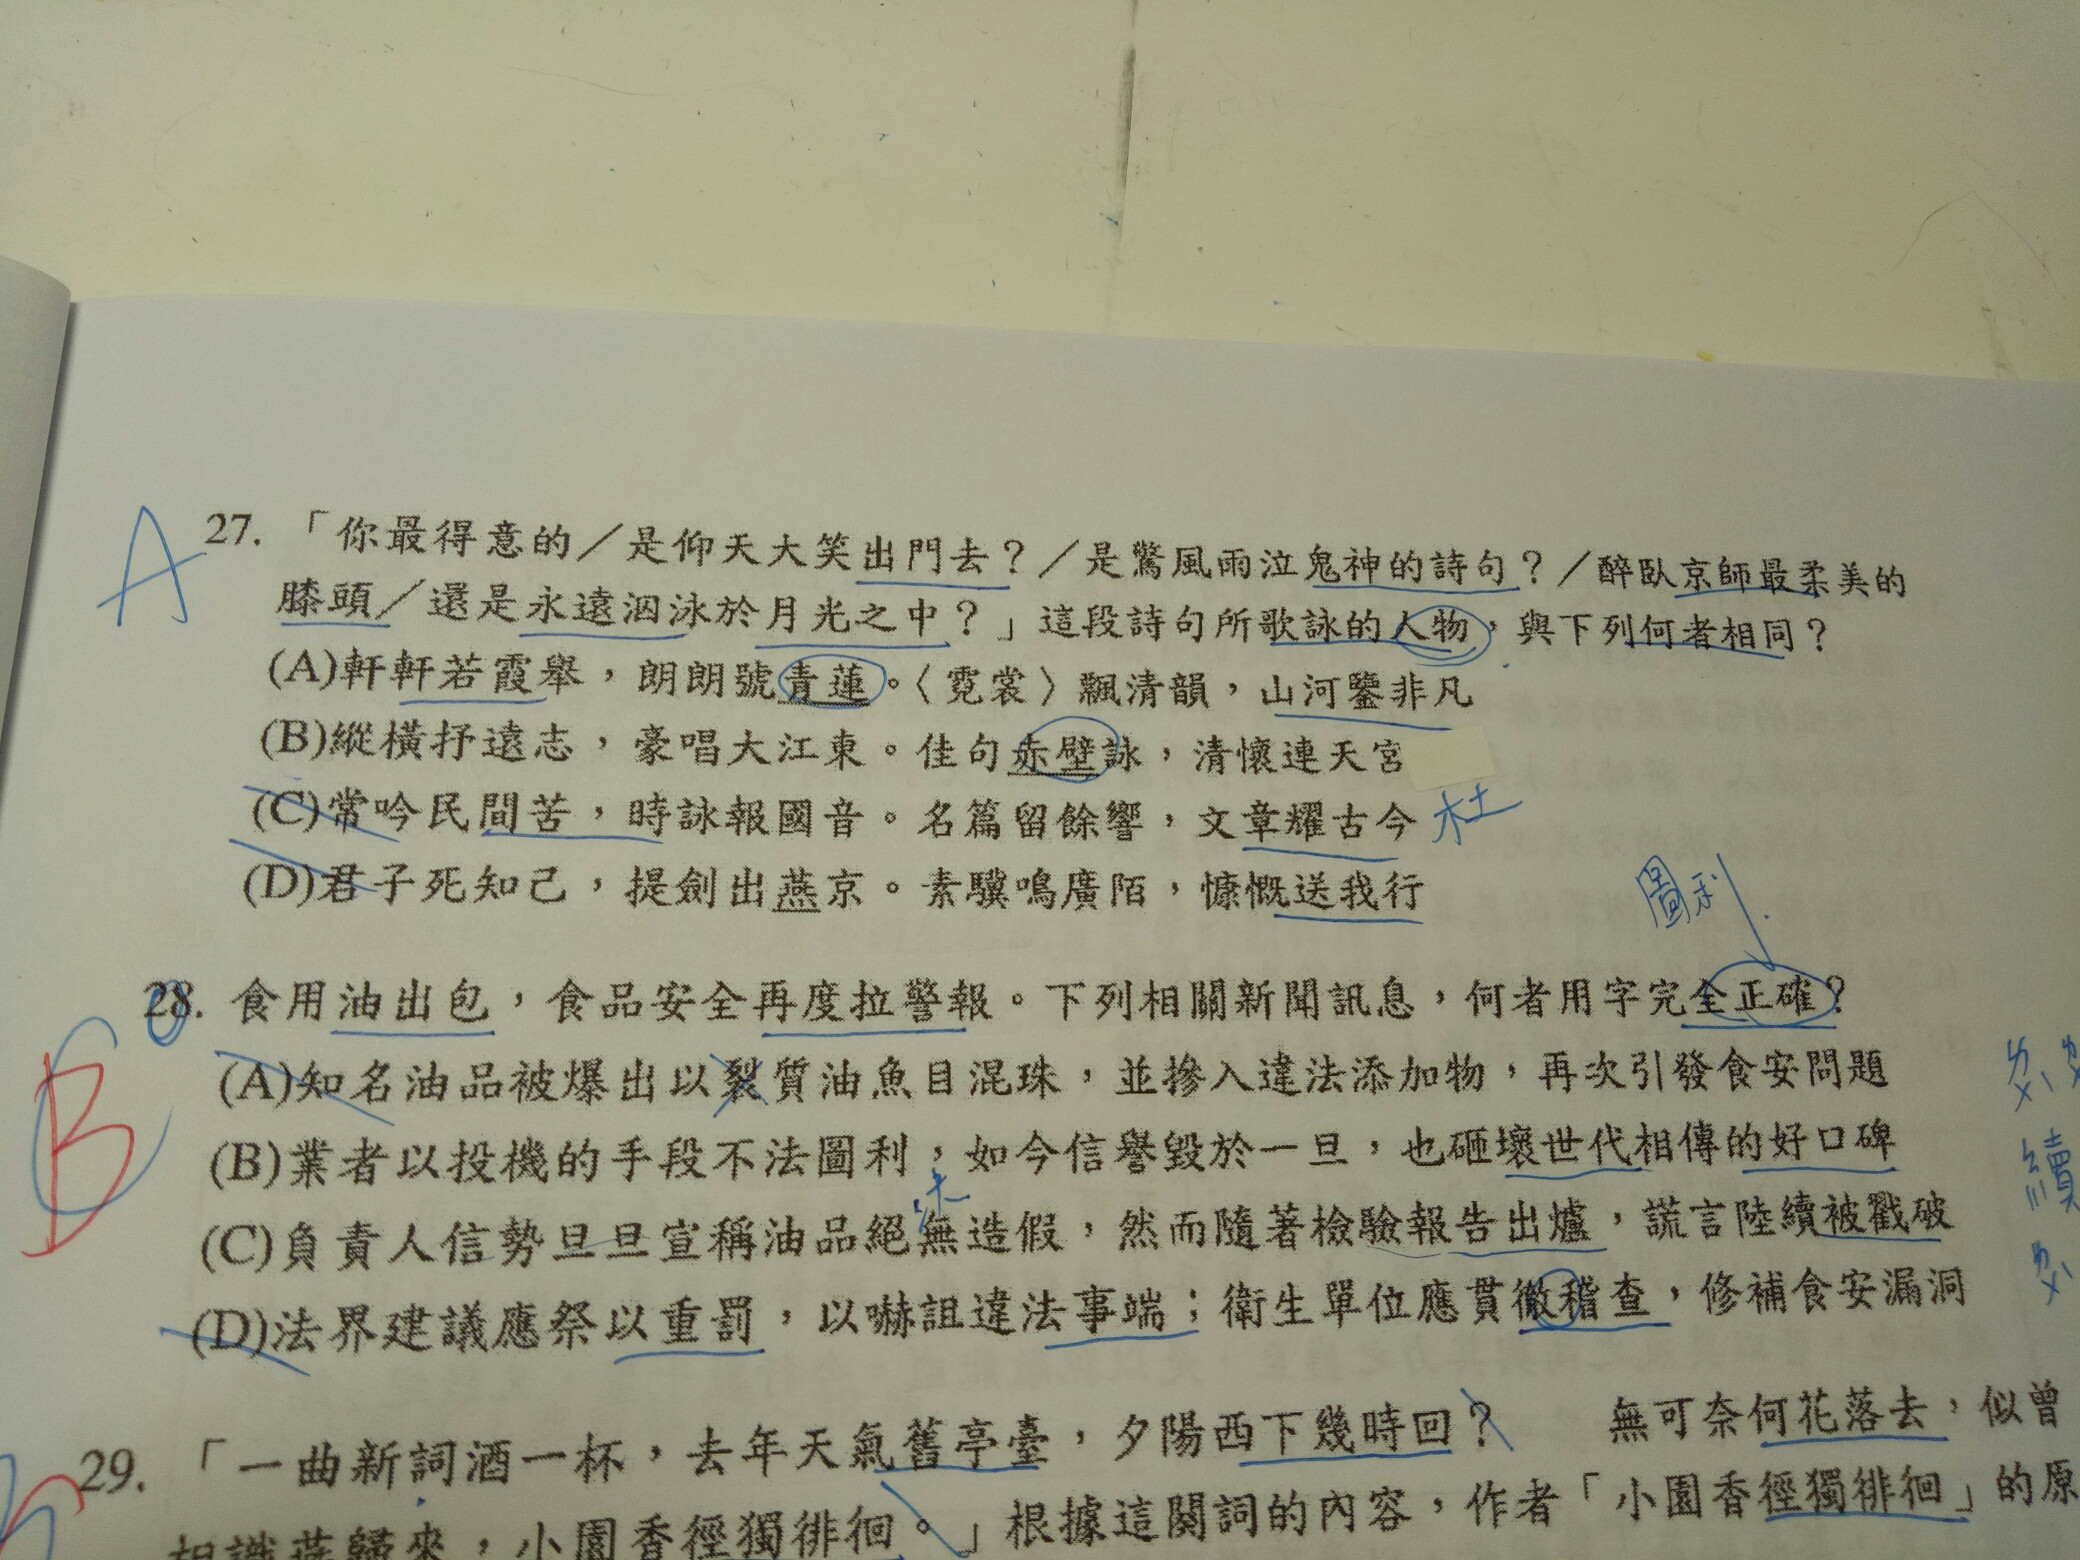 A
27. 「你最得意的／是仰天大笑出門去？／是驚風雨泣鬼神的詩句？／醉臥京師最柔美的
膝頭／還是永遠泅泳於月光之中？」這段詩句所歌詠的人物，與下列何者相同？
(A)軒軒若霞舉，朗朗號青蓮。〈霓裳〉飄清韻，山河鑒非凡
(B)縱橫抒遠志，豪唱大江東。佳句赤壁詠，清懷連天宮
(C)常吟民間苦，時詠報國音。名篇留餘響，文章耀古今 杜
(D)君子死知己，提劍出燕京。素驥鳴廣陌，慷慨送我行
圖利
28. 食用油出包，食品安全再度拉警報。下列相關新聞訊息，何者用字完全正確？
(A)知名油品被爆出以裂質油魚目混珠，並摻入違法添加物，再次引發食安問題
B
(B)業者以投機的手段不法圖利，如今信譽毀於一旦，也砸壞世代相傳的好口碑
續
(C)負責人信勢旦旦宣稱油品絕無造假，然而隨著檢驗報告出爐，謊言陸續被戳破
(D)法界建議應祭以重罰，以嚇詛違法事端；衛生單位應貫徹稽查，修補食安漏洞
29. 「一曲新詞酒一杯，去年天氣舊亭臺，夕陽西下幾時回？ 無可奈何花落去，似曾
相識燕歸來，小園香徑獨徘徊。」根據這闋詞的內容，作者「小園香徑獨徘徊」的原